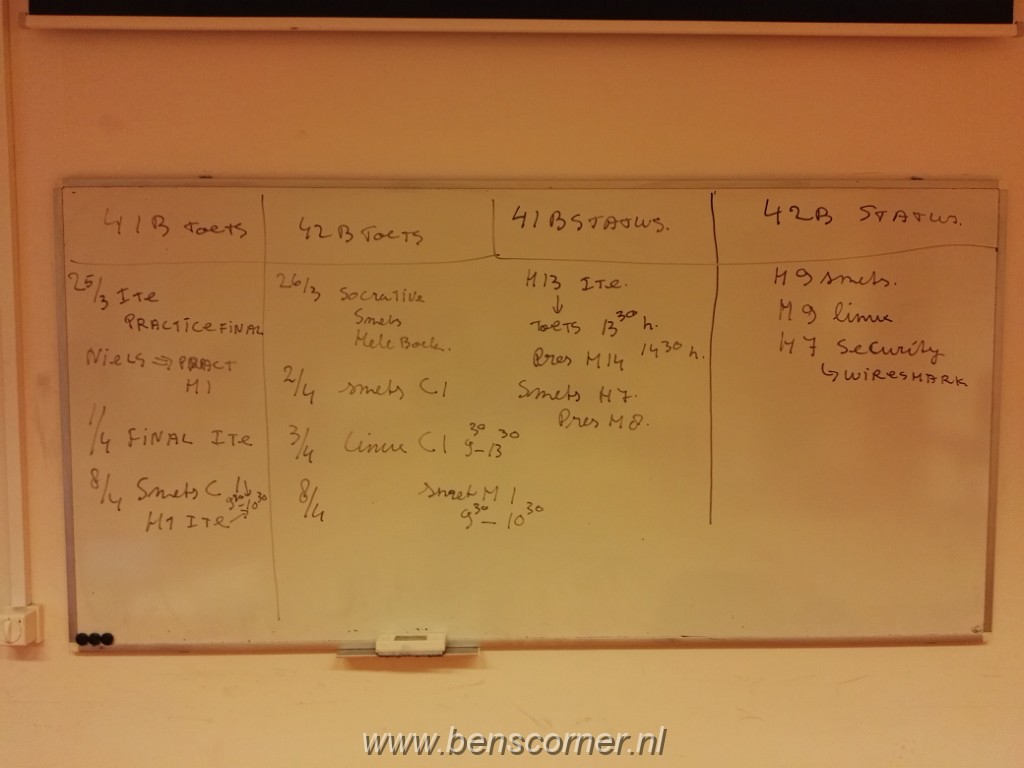 41B TOETS
25/3 ITE
PRACTICE FINAL
NIELS ⇒ PRACT
H1
1/4 FINAL ITE
8/4 Smets C1
9³⁰-10³⁰
H1 ITE
42B TOETS
26/3 Socrative
Smets
Hele Boek.
2/4 smets C1
3/4 Linux C1 9³⁰-13³⁰
8/4 H1
9³⁰-10³⁰
41B STATUS.
H13 ITE.
↓
TOETS 13³⁰ h.
Pres H14 14³⁰ h.
Smets H7.
Pres H8.
42B STATUS.
H9 smets.
H9 linux
H7 Security
↳ WIRESHARK
www.benscorner.nl